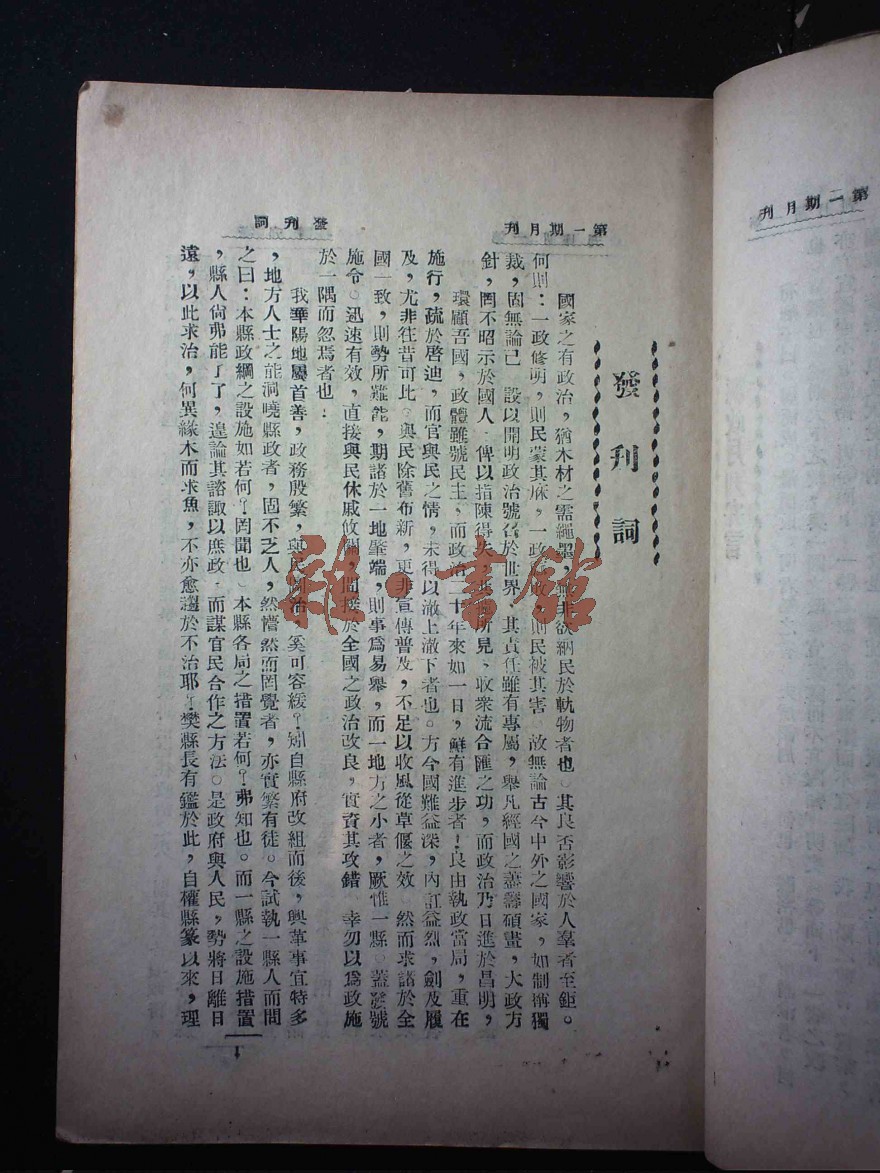 第二期月刊
第一期月刊
發刊詞
發刊詞
國家之有政治，猶木材之需繩墨，非欲納民於軌物者也。其良否影響於人羣者至鉅。
何則：一政修明，則民蒙其庥，一政敗，則民被其害。故無論古今中外之國家，如制稱獨
裁，固無論已 設以開明政治號召於世界、其責任雖有專屬，舉凡經國之藎籌碩畫，大政方
針，罔不昭示於國人 俾以指陳得失，所見、收衆流合匯之功，而政治乃日進於昌明，
環顧吾國，政體雖號民主，而政治二十年來如一日，鮮有進步者！良由執政當局，重在
施行，疏於啓迪，而官與民之情，未得以澈上澈下者也。方今國難益深，內訌益烈，劍及履
及，尤非往昔可比。與民除舊布新，更非宣傳普及，不足以收風從草偃之效 然而求諸於全
國一致，則勢所難能，期諸於一地肇端，則事爲易舉，而一地方之小者，厥惟一縣。蓋發號
施令。迅速有效，直接與民休戚攸關，間接於全國之政治改良，實資其攻錯 幸勿以爲政施
於一隅而忽焉者也：
我華陽地屬首善，政務殷繁，與民圖治，奚可容緩？矧自縣府改組而後，興革事宜特多
，地方人士之能洞曉縣政者，固不乏人，然懵然而罔覺者，亦實繁有徒。今試執一縣人而問
之曰：本縣政綱之設施如若何？罔聞也 本縣各局之措置若何？弗知也。而一縣之設施措置
，縣人尙弗能了了，遑論其諮諏以庶政 而謀官民合作之方法。是政府與人民，勢將日離日
遠，以此求治，何異緣木而求魚，不亦愈趨於不治耶？樊縣長有鑑於此，自權縣篆以來，理
一
雜·書館